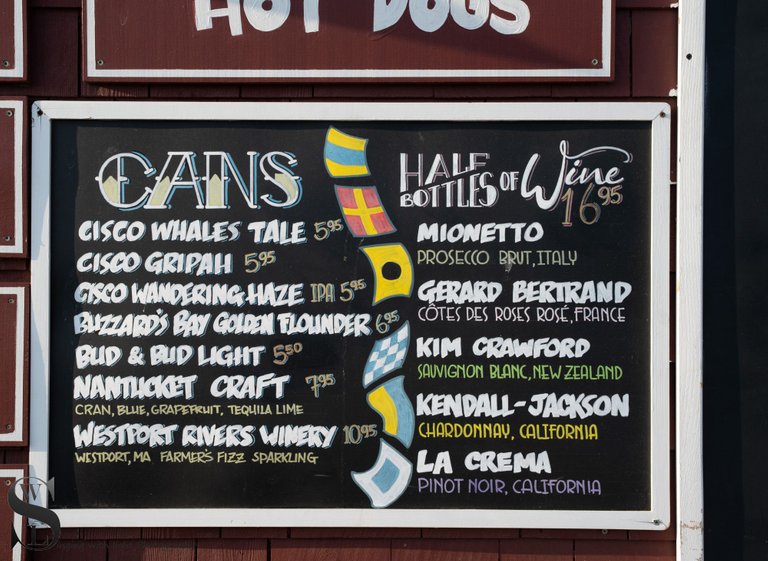 HOT DOGS
CANS
CISCO WHALES TALE 5 95
CISCO GRIPAH 5 95
CISCO WANDERING HAZE IPA 5 95
BUZZARD'S BAY GOLDEN FLOUNDER 6 95
BUD & BUD LIGHT 5 50
NANTUCKET CRAFT 7 95
CRAN, BLUE, GRAPEFRUIT, TEQUILA LIME
WESTPORT RIVERS WINERY 10 95
WESTPORT, MA FARMER'S FIZZ SPARKLING
HALF
BOTTLES OF Wine
16 95
MIONETTO
PROSECCO BRUT, ITALY
GERARD BERTRAND
CÔTES DES ROSES ROSÉ, FRANCE
KIM CRAWFORD
SAUVIGNON BLANC, NEW ZEALAND
KENDALL-JACKSON
CHARDONNAY, CALIFORNIA
LA CREMA
PINOT NOIR, CALIFORNIA